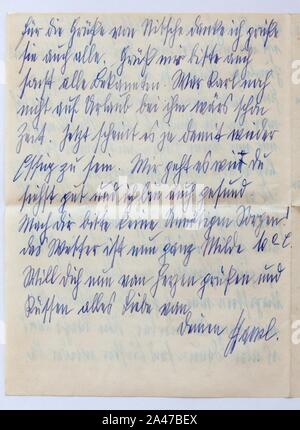 Für die Grüße von Nitsche danke ich grüße
sie auch alle. Grüß mir bitte auch
sonst alle Bekannten. War Karl noch
nicht auf Urlaub bei ihm wärs schon
Zeit. Jetzt scheint es ja damit wieder
Essig zu sein. Mir geht es wie du
siehst gut und bin auch gesund.
Mach dir bitte keine Sorgen
das Wetter ist nun ganz Milde 10 C.
Will dich nun von Herzen grüßen und
Küssen alles liebe von
Deinen
alamy
alamy
Image ID: 2A47BEX
www.alamy.com